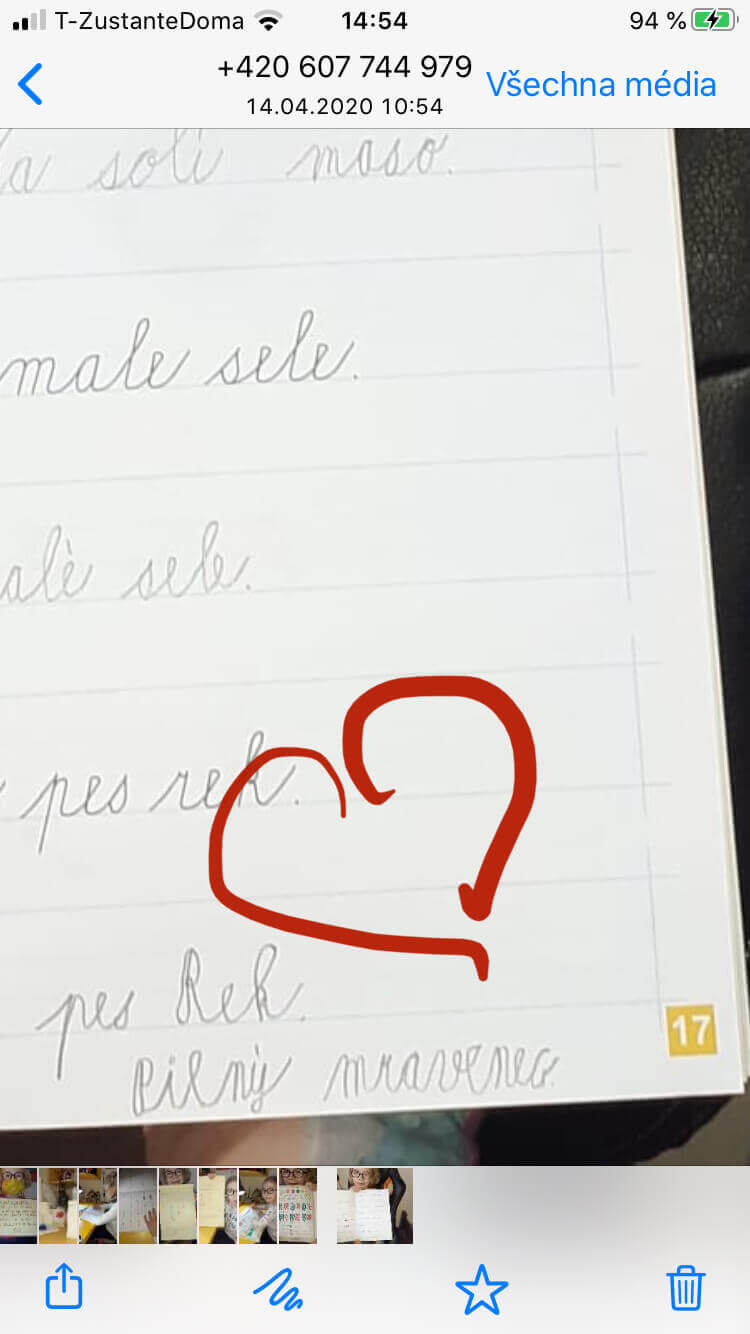 T-ZustanteDoma 14:54 94 %
+420 607 744 979
14.04.2020 10:54
Všechna média
soli maso.
male sele.
alè sele.
pes rek.
pes Rek.
17
Pilný mravenec.